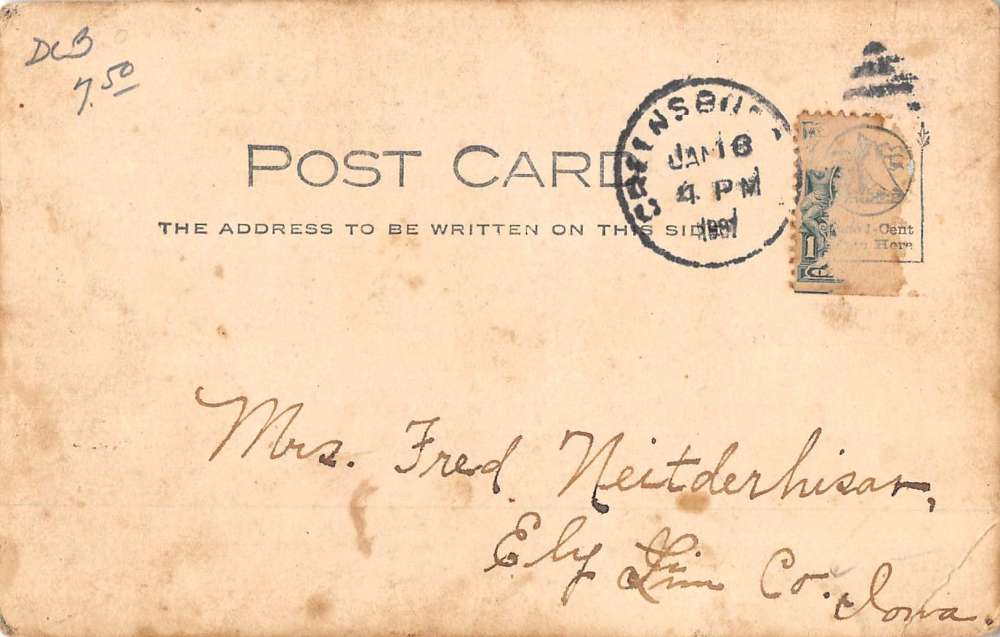 DCB
7.50
POST CARD
THE ADDRESS TO BE WRITTEN ON THIS SIDE
JAN 16
4 PM
1907
1
1-Cent
Here
Mrs. Fred Neitderhisar,
Ely Lin Co. Iowa.